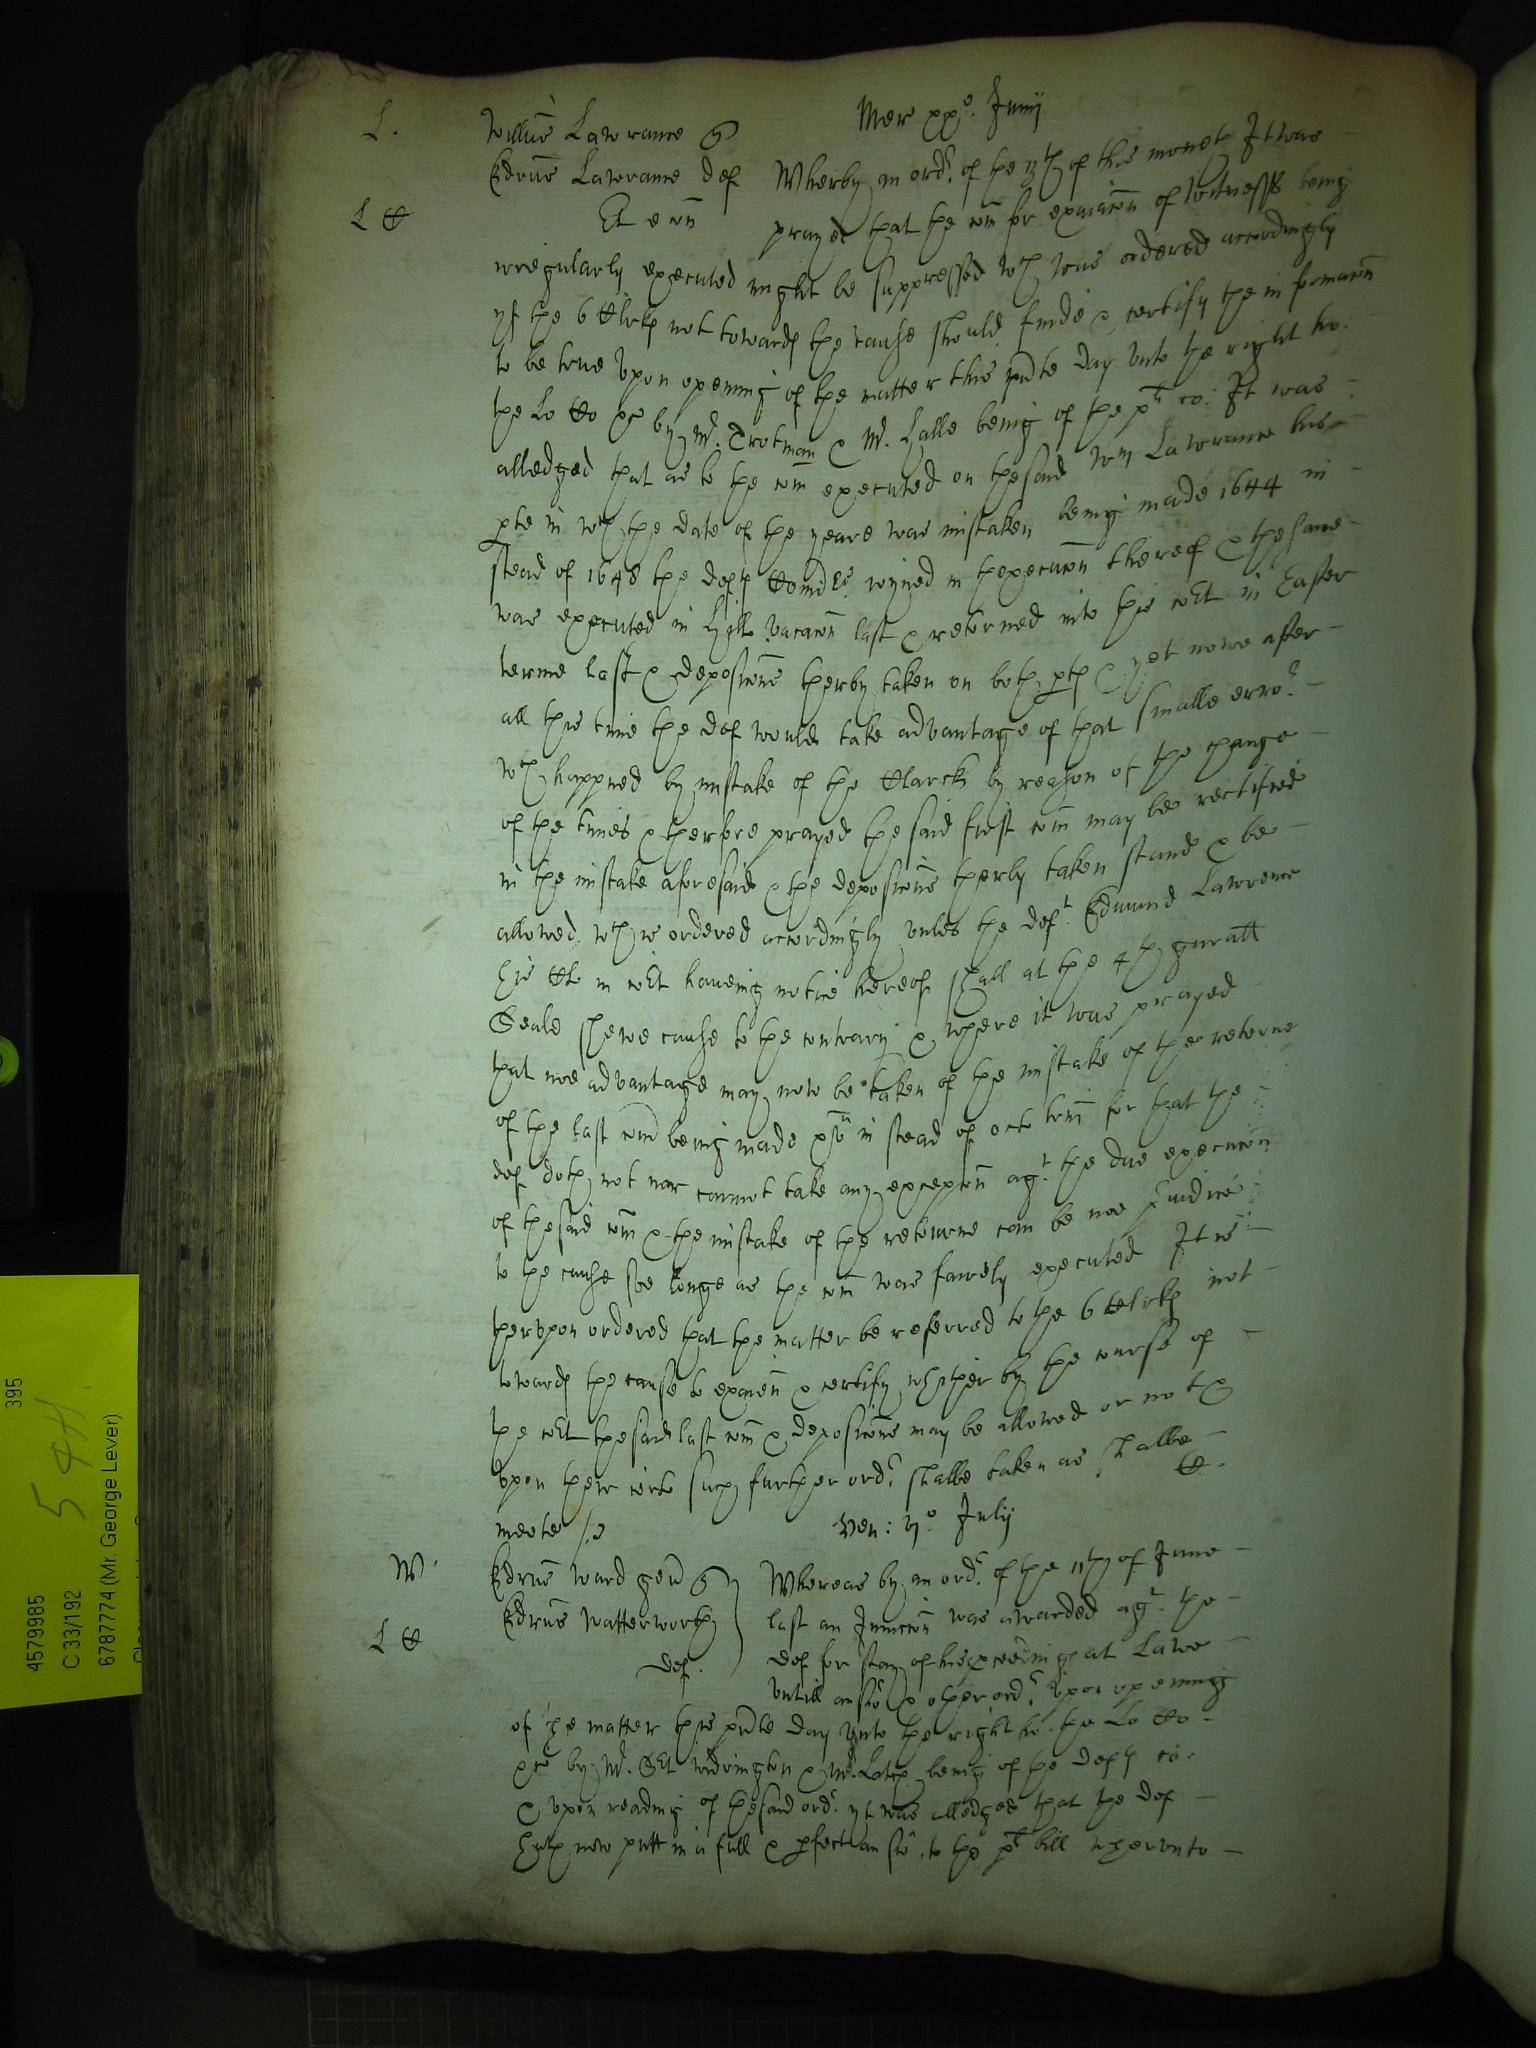 Mer xxo. Junij
L. Willus Lawrance q
Edrus Lawrance def Wherby an ordr. of the of this moneth It was
L Et e con prayed that the com for exaiacon of Witnesses being
irregularly executed might be suppressed wch was ordered accordingly
yf the 6 Clrks not towards the cause should finde & certify the informacon
to be true Upon opening of the matter this pnte day unto the right ho.
the Lo Co &c by Mr. Trotman & Mr. Halle being of the plt co: It was
alledged that as to the com executed on the said Wm Lawrance his
pte in wch the date of the yeare was mistaken being made 1644 in
stead of 1648 the defts Comrs joyned in thexecucon thereof & the same
was executed in Hill vacacon last & retorned into this cort in Easter
terme last & deposicons therby taken on both pts & yet nowe after
all this time the def would take advantage of that smalle error
wch happned by mistake of the Clarcks by reason of the change
of the times & therfore prayed the said first com may be rectified
in the mistake aforesaid & the deposicons therby taken stand & be
allowed wch is ordered accordingly unles the deft. Edmund Lawrence
his Cl in cort haveing notice hereof shall at the 4th gnrall
Seale shewe cause to the contrary & where it was prayed
that noe advantage may now be taken of the mistake of the retorne
of the last com being made in stead of octo for that the
def doth not nor cannot take any excepcon agt. the due execucon
of the said com & the mistake of the retourne can be noe pjudice
to the cause soe longe as the com was fairely executed It is
therupon ordered that the matter be referred to the 6 Clrks not
towards the cause to exaien & certify whither by the course of
the cort the said last com & deposicons may be allowed or not &
upon their certo such further ordr shalbe taken as shalbe
meete /.
Ven: Julij
W. Edrus Ward gen q Whereas by an ordr. of the 11th of June
Edrus Watterworth last an Junccon was awarded agt. the
L def. def for stay of his pceedings at Lawe
untill answ & other ordr. Upon opening
of the matter this pnte day unto the right ho. the Lo Co
&c by Mr. Sct Widdrington & Mr. Latch being of the defts co.
& upon reading of the said ordr. yt was alledged that the def
hath now putt in a full & pfect answ. to the plt bill wherunto
395
5 4H
4579985
C 33/192
6787774 (Mr. George Lever)